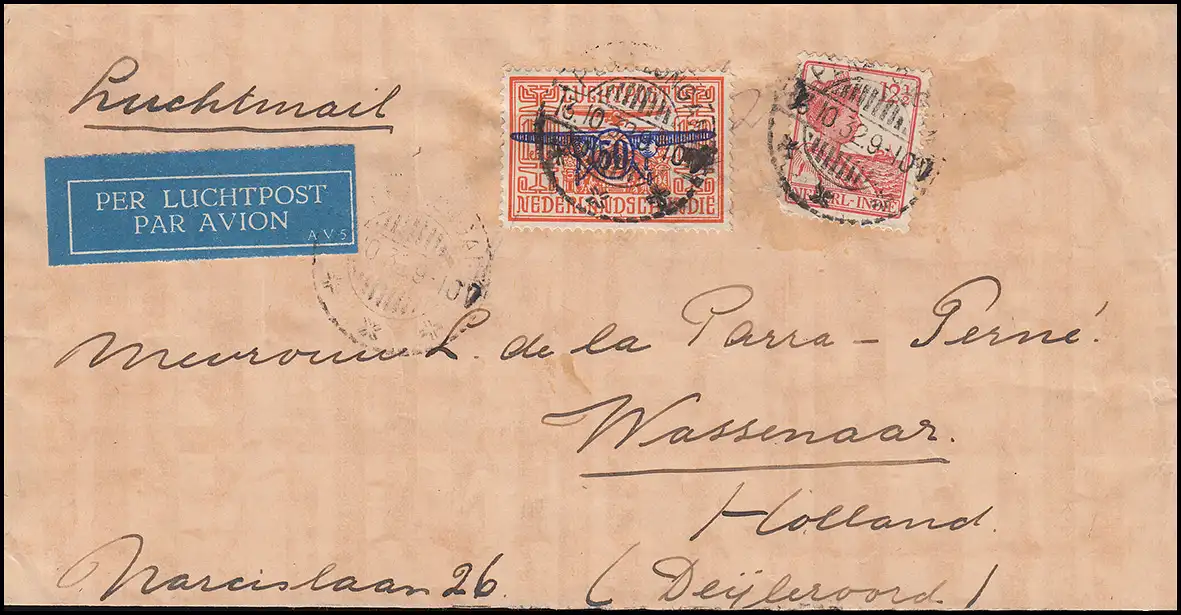 Luchtmail
PER LUCHTPOST
PAR AVION
AV5
LUCHTPOST
50
NEDERLANDSCH-INDIE
13.10.32.9-10V
12½
NEDERL-INDIE
13.10.32.9-10V
10.32.9-10V
Mevrouw L. de la Parra – Perné.
Wassenaar.
Holland.
Narcislaan 26 (Deijleroord)